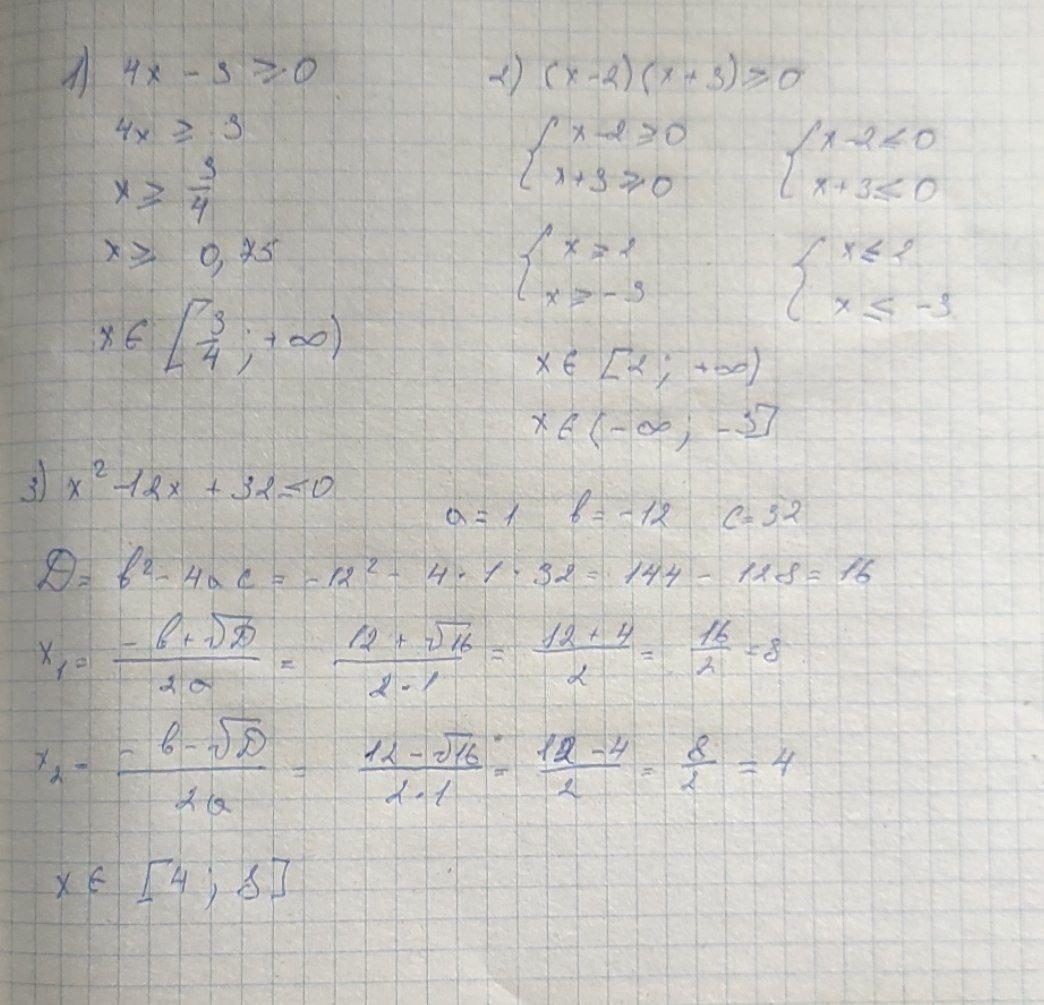 1) 4x - 3 ≥ 0
4x ≥ 3
x ≥ 3/4
x ≥ 0,75
x ∈ [3/4 ; +∞)
2) (x-2)(x+3) ≥ 0
{ x-2 ≥ 0 { x-2 ≤ 0
x+3 ≥ 0 x+3 ≤ 0
{ x ≥ 2 { x ≤ 2
x ≥ -3 x ≤ -3
x ∈ [2; +∞)
x ∈ (-∞; -3]
3) x² - 12x + 32 ≤ 0
a = 1 b = -12 c = 32
D = b² - 4ac = -12² - 4·1·32 = 144 - 128 = 16
x₁ = (-b+√D)/(2a) = (12+√16)/(2·1) = (12+4)/2 = 16/2 = 8
x₂ = (-b-√D)/(2a) = (12-√16)/(2·1) = (12-4)/2 = 8/2 = 4
x ∈ [4; 8]